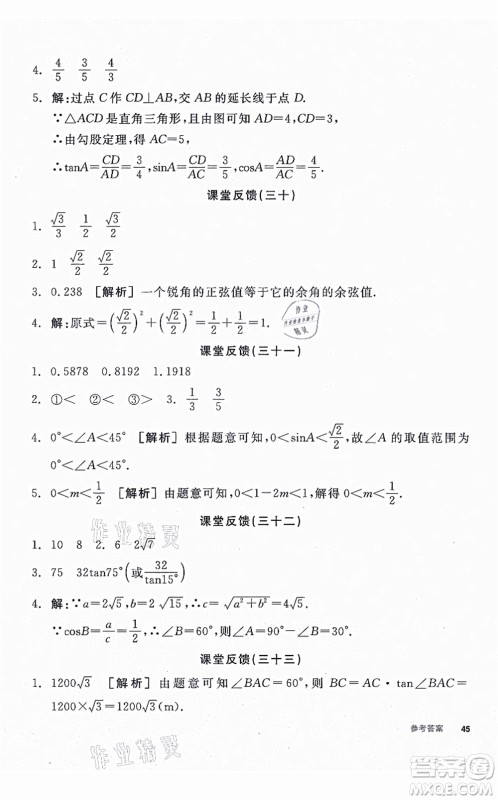 4. 4/5 3/5 4/3
5. 解:过点 C 作 CD⊥AB,交 AB 的延长线于点 D.
∵△ACD 是直角三角形,且由图可知 AD=4,CD=3,
∴由勾股定理,得 AC=5,
∴tanA=CD/AD=3/4,sinA=CD/AC=3/5,cosA=AD/AC=4/5.
课堂反馈(三十)
1. √3/3 1/2 √2/2
2. 1 √2/2 √2/2
3. 0.238 [解析] 一个锐角的正弦值等于它的余角的余弦值.
4. 解:原式=(√2/2)²+(√2/2)²=1.
课堂反馈(三十一)
1. 0.5878 0.8192 1.1918
2. ①< ②< 3. 1/3 3/5
4. 0°<∠A<45° [解析] 根据题意可知,0<sinA<√2/2,故∠A 的取值范围为
0°<∠A<45°.
5. 0<m<1/2 [解析] 由题意可知,0<1-m<1/2,解得 0<m<1/2.
课堂反馈(三十二)
1. 10 8 2. 2√7
3. 75 32tan75°(或32/tan15°)
4. 解:∵a=2√5,b=2√15,∴c=√a²+b²=4√5.
∵cosB=a/c=1/2,∴∠B=60°,则∠A=30°.
课堂反馈(三十三)
1. 1200√3 [解析] 由题意可知∠BAC=60°,所以 BC=AC·tan∠BAC=
1200×√3=1200√3(m).
参考答案 45
作业精灵
作业精灵
答案圈
MXQE.COM